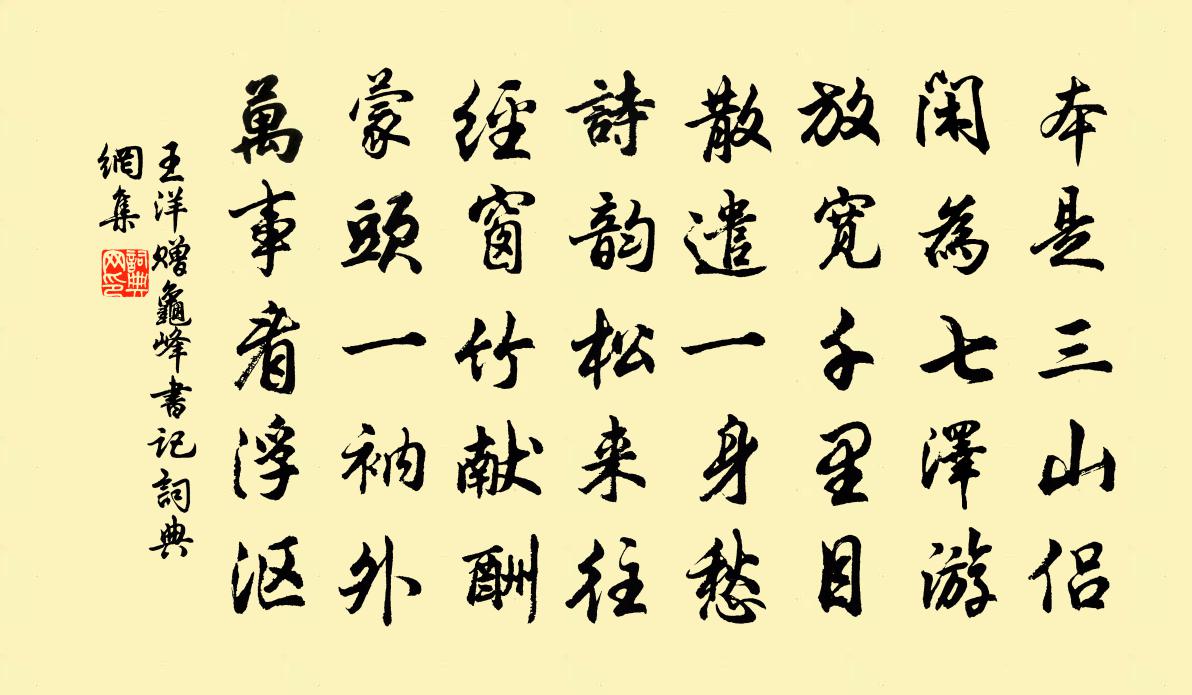 本是三山侣
闲為七澤游
放宽千里目
散遣一身愁
詩韵松来往
經窗竹献酬
蒙頭一衲外
萬事看浮沤
王洋赠龜峰書记詞典
網集
詞典
网印